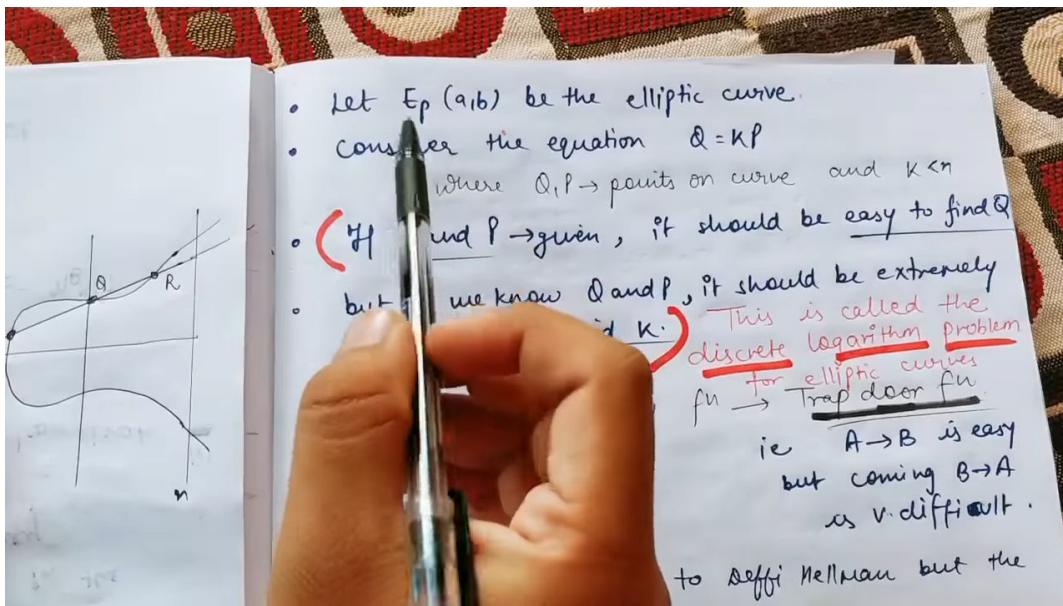 Let Ep (a,b) be the elliptic curve.
the equation Q = KP
where Q,P → points on curve and K<n
If P → given, it should be easy to find Q
but we know Q and P, it should be extremely
K.
This is called the
discrete logarithm problem
for elliptic curves
fn → Trap door fn
ie A → B is easy
but coming B → A
is v. difficult.
to Deffi Hellman but the
Q
R
n